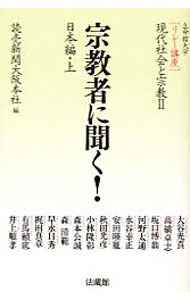 立命館大学
[リレー講座]
現代社会と宗教Ⅱ
宗教者に聞く!
日本編・上
読売新聞大阪本社 編
大谷光真
高橋卓志
坂口博翁
河野太通
水谷幸正
安田暎胤
秋田光彦
小林隆彰
森本公誠
森 清範
早水日秀
梶田真章
有馬頼底
井上順孝
法蔵館